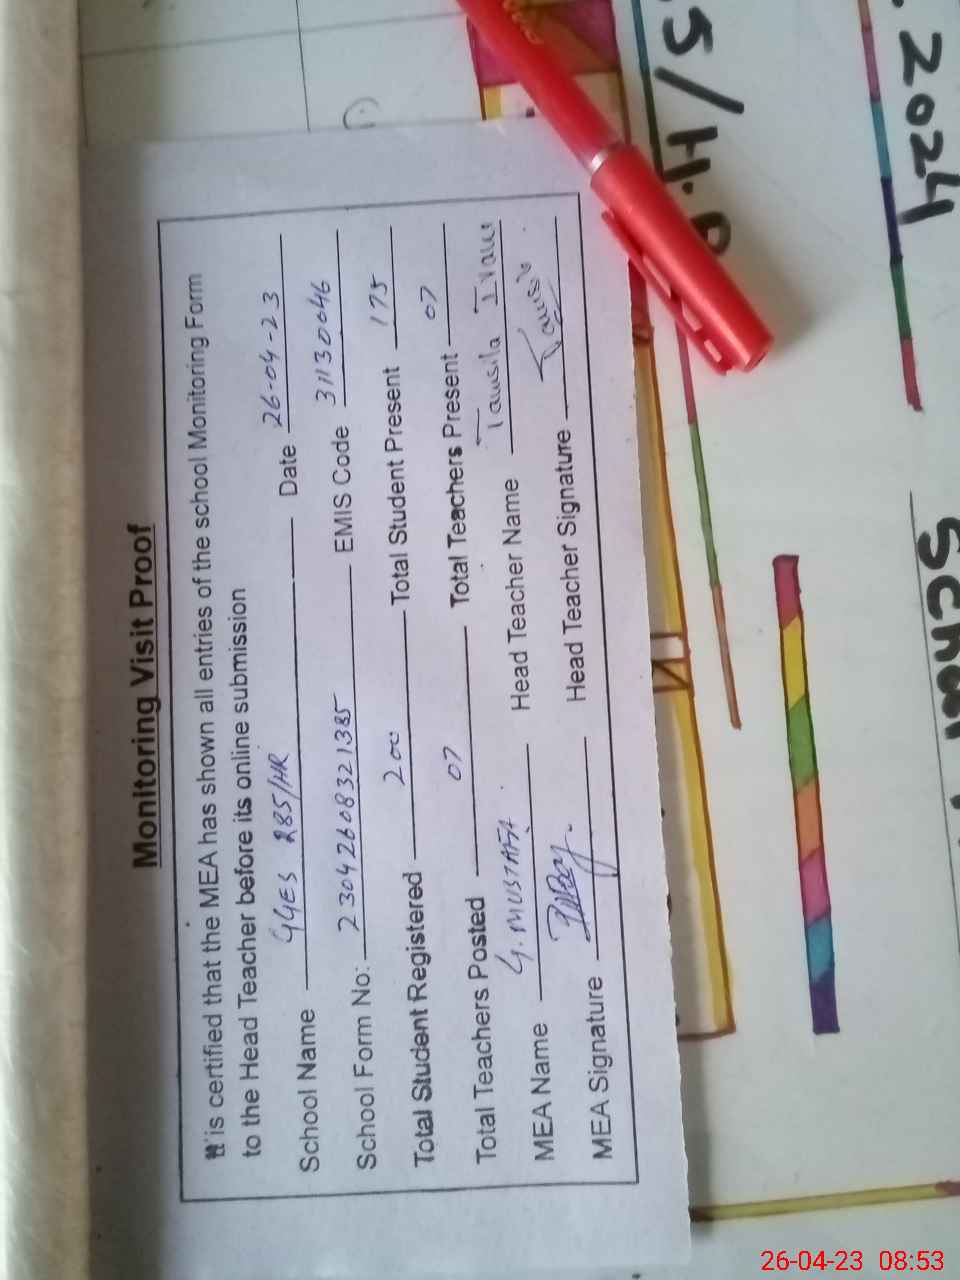 Monitoring Visit Proof
It is certified that the MEA has shown all entries of the school Monitoring Form
to the Head Teacher before its online submission
School Name GGES 285/HR Date 26-04-23
School Form No: 23042608321385 EMIS Code 31130646
Total Student Registered 200 Total Student Present 175
Total Teachers Posted 07 Total Teachers Present 07
MEA Name G. MUSTAFA Head Teacher Name Tawsila
MEA Signature Head Teacher Signature
S/H.R
2024
School
26-04-23 08:53